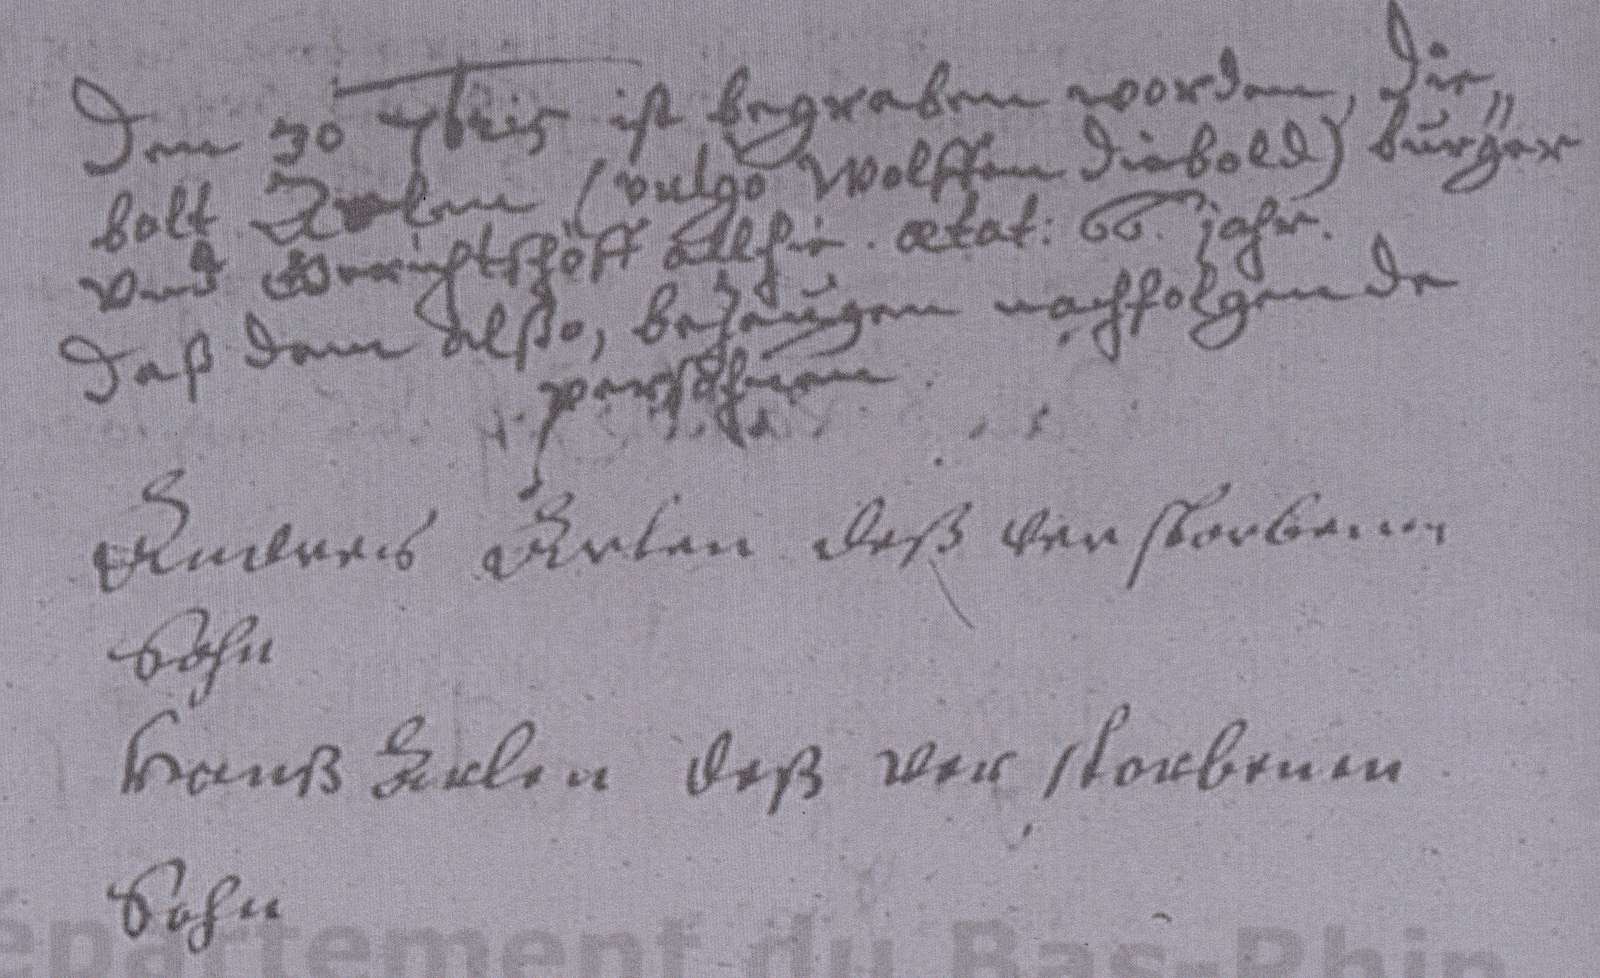 Den 30 7bris ist begraben worden, Die„
bolt (vulgo Wolffen Diebold) burger
und Gerichtschöff allhie. ætat: 66. jahr.
Daß dem alßo, bezeugen nachfolgende
persohnen.
Andreas Erlen deß verstorbenen
Sohn
Hanß Erlen deß verstorbenen
Sohn
département du Bas-Rhin